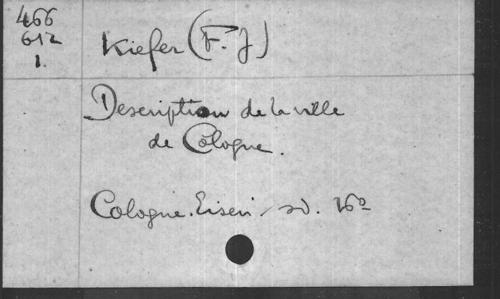 466
612
1.
Kiefer (F. J)
Description de la ville
de Cologne.
Cologne. Eisen, sd. 16°